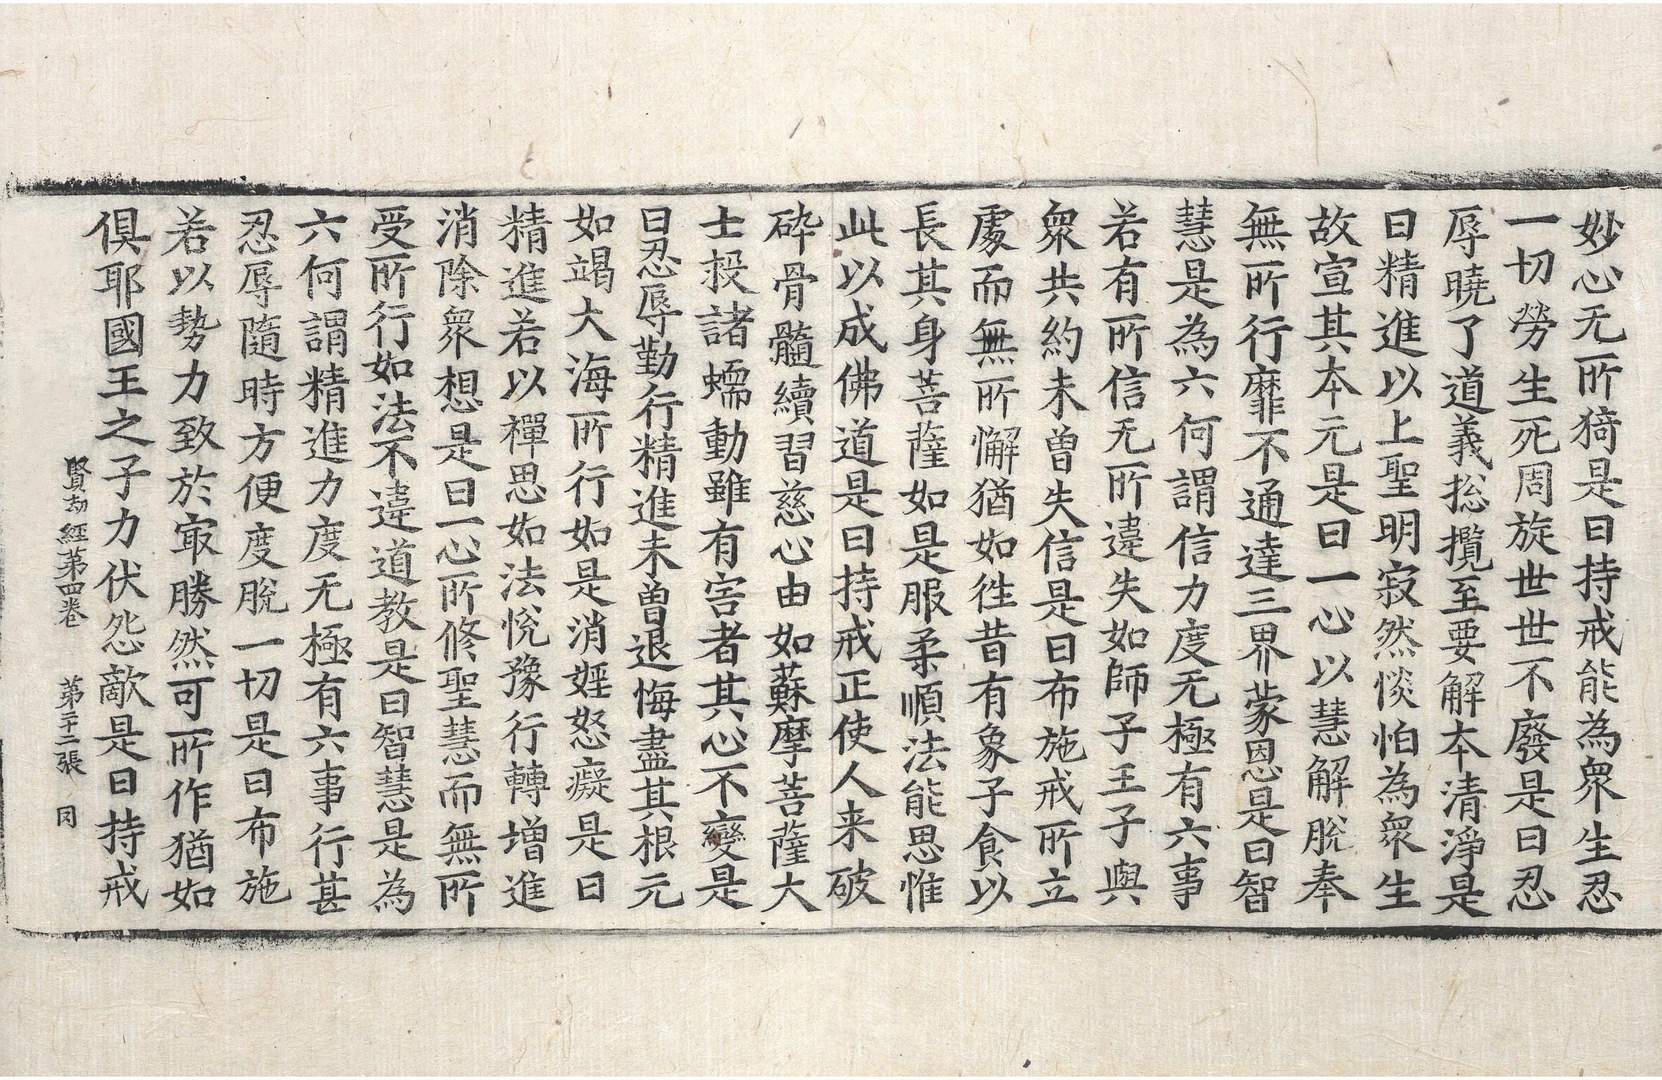 妙心无所猗是曰持戒能為衆生忍
一切勞生死周旋世世不廢是曰忍
辱曉了道義捴攬至要解本清淨是
曰精進以上聖明寂然惔怕為衆生
故宣其本元是曰一心以慧解脫奉
無所行靡不通達三界蒙恩是曰智
慧是為六何謂信力度无極有六事
若有所信无所違失如師子王子與
衆共約未曾失信是曰布施戒所立
處而無所懈猶如徃昔有象子食以
長其身菩薩如是服柔順法能思惟
此以成佛道是曰持戒正使人来破
碎骨髓續習慈心由如蘇摩菩薩大
士投諸蠕動雖有害者其心不變是
曰忍辱勤行精進未曾退悔盡其根元
如竭大海所行如是消婬怒癡是曰
精進若以禪思如法恱豫行轉增進
消除衆想是曰一心所修聖慧而無所
受所行如法不違道教是曰智慧是為
六何謂精進力度无極有六事行甚
忍辱隨時方便度脫一切是曰布施
若以勢力致於㝡勝然可所作猶如
俱耶國王之子力伏怨敵是曰持戒
賢劫經第四卷 第二十二張 同